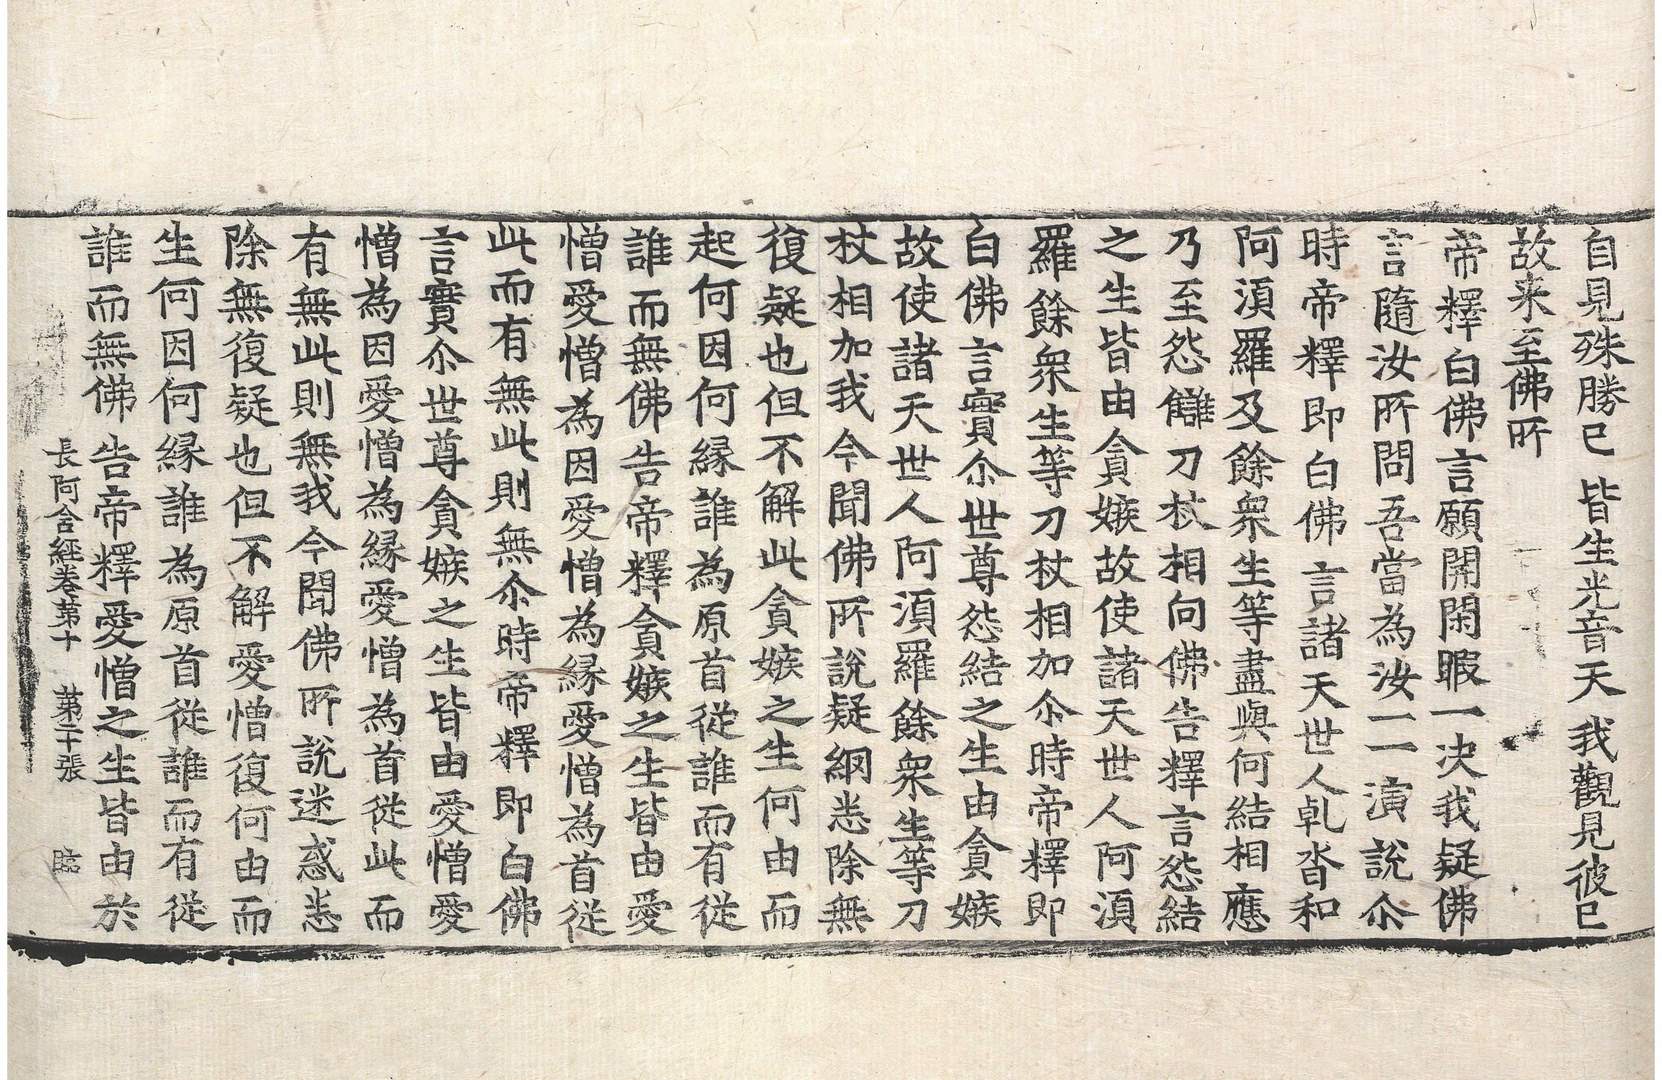 自見殊勝已 皆生光音天 我觀見彼已
故来至佛所
帝釋白佛言願開閑暇一决我疑佛
言隨汝所問吾當為汝一一演說尒
時帝釋即白佛言諸天世人乹沓和
阿湏羅及餘衆生等盡與何結相應
乃至怨讎刀杖相向佛告釋言怨結
之生皆由貪嫉故使諸天世人阿湏
羅餘衆生等刀杖相加尒時帝釋即
白佛言實尒世尊怨結之生由貪嫉
故使諸天世人阿湏羅餘衆生等刀
杖相加我今聞佛所說疑網悉除無
復疑也但不解此貪嫉之生何由而
起何因何緣誰為原首從誰而有從
誰而無佛告帝釋貪嫉之生皆由愛
憎愛憎為因愛憎為緣愛憎為首從
此而有無此則無尒時帝釋即白佛
言實尒世尊貪嫉之生皆由愛憎愛
憎為因愛憎為緣愛憎為首從此而
有無此則無我今聞佛所說迷惑悉
除無復疑也但不解愛憎復何由而
生何因何緣誰為原首從誰而有從
誰而無佛告帝釋愛憎之生皆由於
長阿含經卷第十 第二十張 臨